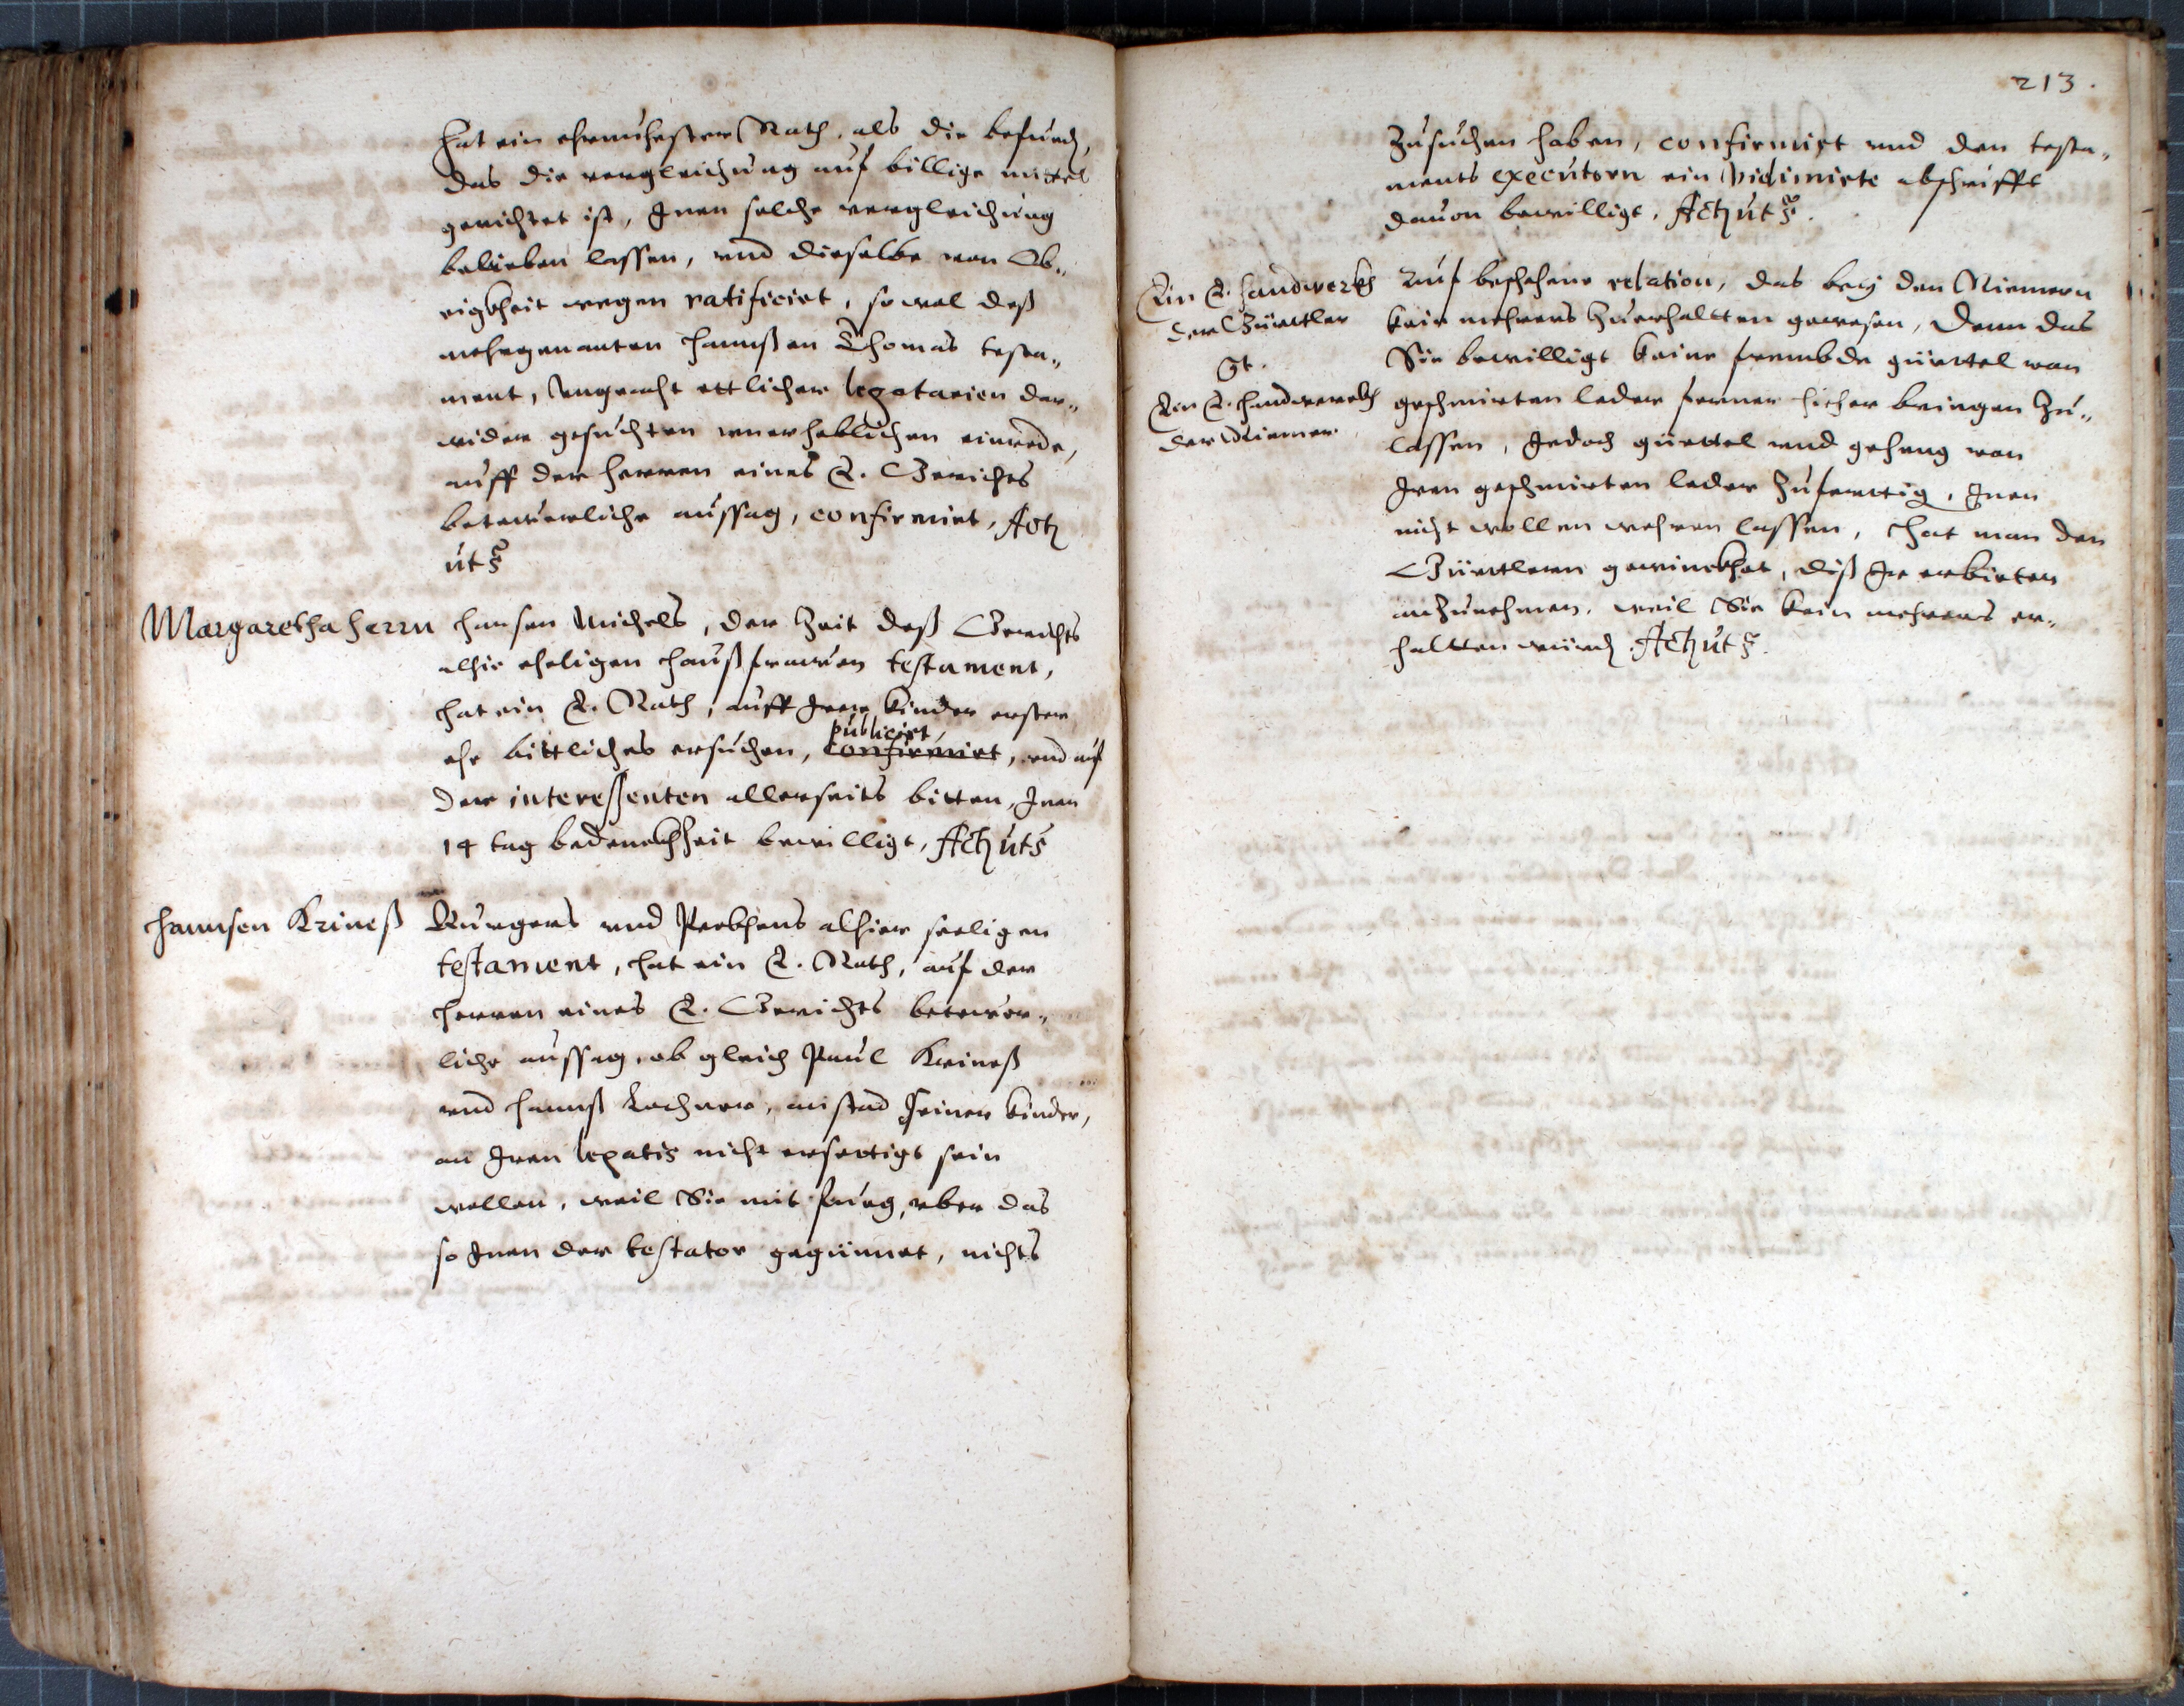 hat ein ehrnuhester Rath, als die befund,
das die vergleichung auf billige mittel
gerichtet ist, Inen solche vergleichung
belieben lassen, vnd dieselbe von Ob„
rigkheit wegen ratificirt, so wol deß
mehrgenanten Hannßen Thomas testa„
ment, Vngeacht ettlicher legatarien dar„
wider gesuchten vnerheblichen einrede,
auff der herren eines E. Gerichts
betewrliche aussag, confirmirt, Act
ut s
Margaretha Herrn Hansen Michels, der Zeit deß Gerichts
alhie eheligen haußfrawen testament,
hat ein E. Rath, auff Irer kinder erster
publicirt,
ehe bittliches ersuchen, confirmirt, vnd auf
der interessenten allerseits bitten, Inen
14 tag bedenckhzeit bewilligt, Act ut s
Hannsen Krineß Burgers vnd Peckhens alhier seeligen
testament, hat ein E. Rath, auf der
herren eines E. Gerichts betewer„
liche aussag, ob gleich Paul Krineß
vnd Hannß Lochner, anstad seiner kinder,
an Iren legatis nicht ersettigt sein
wollen, weil Sie mit fueg, vber das
so Inen der testator gegünnet, nichts
213.
Zusuchen haben, confirmirt vnd den testa„
ments executorn ein vidimirte abschrifft
dauon bewilligt, Act ut s.
Ein E. Handwerkh
der Gürttler
Ein E. Handwerckh
der Riemer.
Auf beschehene relation, das bey den Riemern
kein mehrers Zuerhaltten gewesen, denn das
Sie bewilligt keine frembde gürttel von
geschmirten leder ferner hieher bringen Zu„
lassen, Jedoch gürttel vnd geheng von
Iren geschmirten leder Zufertig, Inen
nicht wollen wehren lassen, hat man den
Gürttlern gewinckhet, diß Ir erbieten
anzunehmen, weil Sie kein mehrers er„
haltten würd. Act ut s.